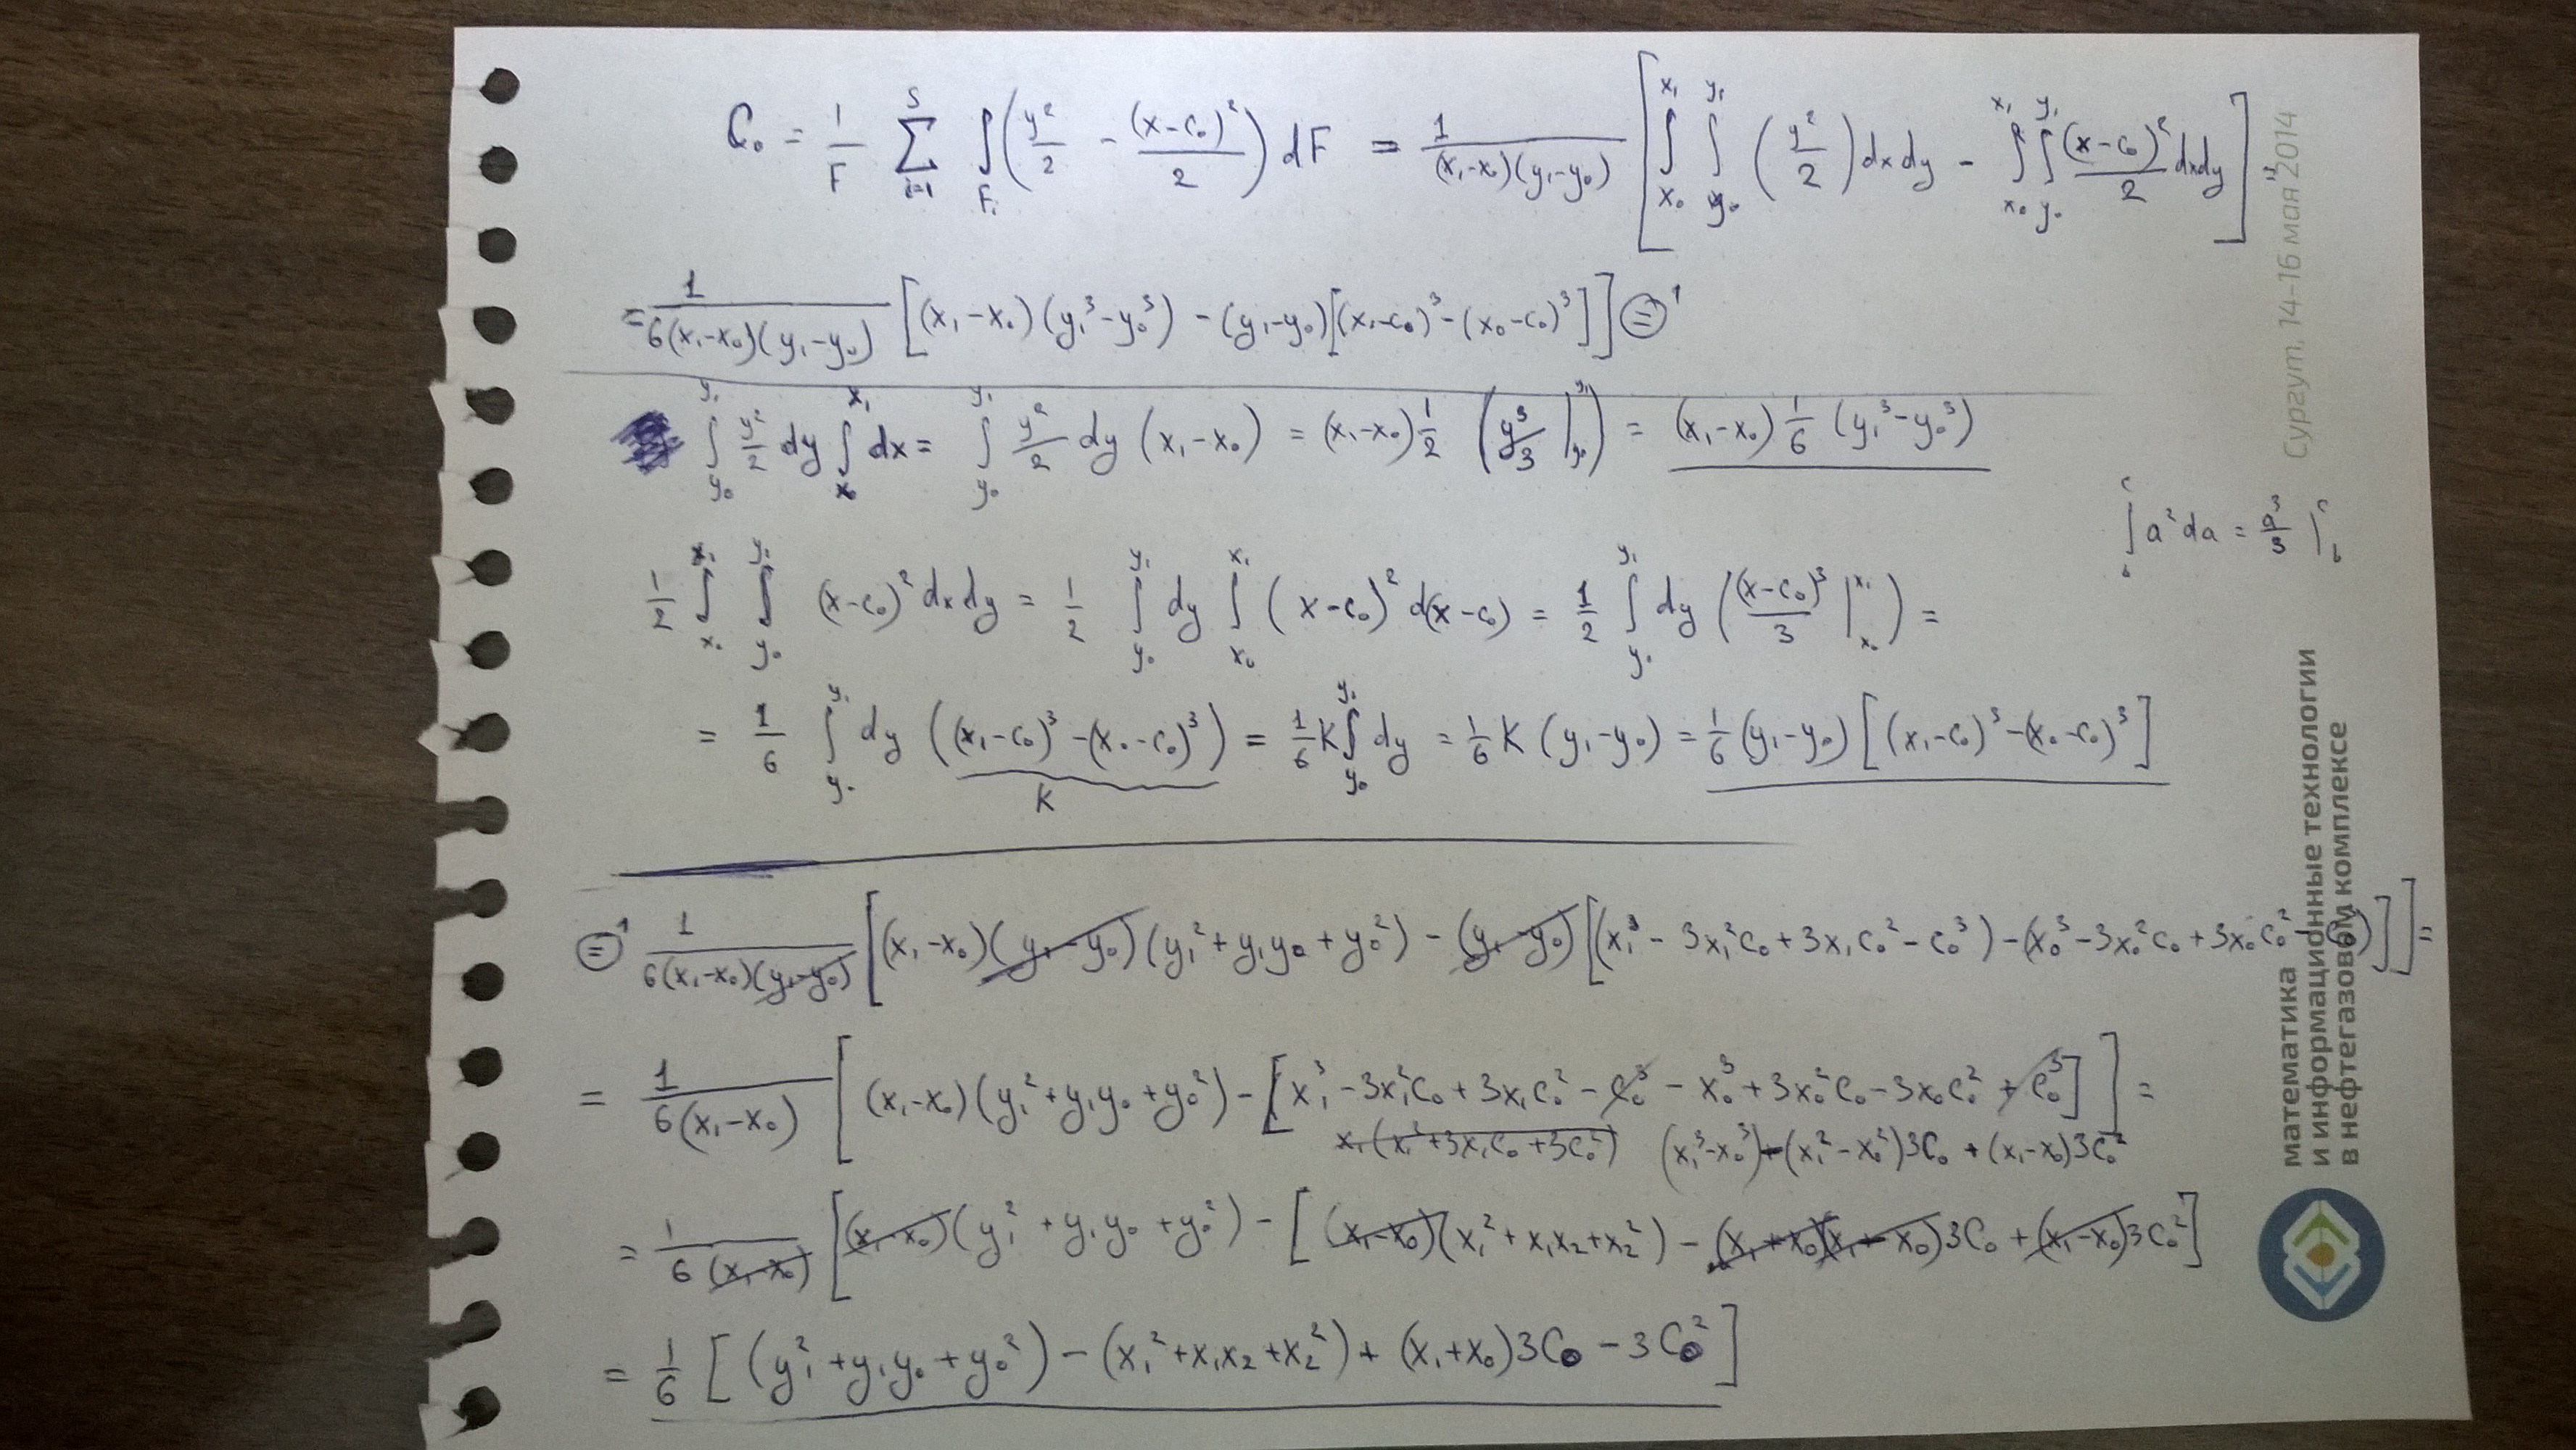 C₀ = 1/F ∑_{i=1}^{S} ∫_{Fᵢ} (y²/2 − (x−c₀)²/2) dF = 1/((x₁−x₀)(y₁−y₀)) [∫_{x₀}^{x₁} ∫_{y₀}^{y₁} (y²/2) dx dy − ∫_{x₀}^{x₁} ∫_{y₀}^{y₁} (x−c₀)²/2 dxdy] =
= 1/(6(x₁−x₀)(y₁−y₀)) [(x₁−x₀)(y₁³−y₀³) − (y₁−y₀)[(x₁−c₀)³−(x₀−c₀)³]] ⊜¹
∫_{y₀}^{y₁} y²/2 dy ∫_{x₀}^{x₁} dx = ∫_{y₀}^{y₁} y²/2 dy (x₁−x₀) = (x₁−x₀) 1/2 (y³/3 |_{y₀}^{y₁}) = (x₁−x₀) 1/6 (y₁³−y₀³)
∫_{b}^{c} a² da = a³/3 |_{b}^{c}
1/2 ∫_{x₀}^{x₁} ∫_{y₀}^{y₁} (x−c₀)² dx dy = 1/2 ∫_{y₀}^{y₁} dy ∫_{x₀}^{x₁} (x−c₀)² d(x−c₀) = 1/2 ∫_{y₀}^{y₁} dy ((x−c₀)³/3 |_{x₀}^{x₁}) =
= 1/6 ∫_{y₀}^{y₁} dy ((x₁−c₀)³−(x₀−c₀)³) = 1/6 K ∫_{y₀}^{y₁} dy = 1/6 K (y₁−y₀) = 1/6 (y₁−y₀) [(x₁−c₀)³−(x₀−c₀)³]
K
⊜¹ 1/(6(x₁−x₀)(y₁−y₀)) [(x₁−x₀)(y₁−y₀)(y₁²+y₁y₀+y₀²) − (y₁−y₀)[(x₁³ − 3x₁²c₀ + 3x₁c₀² − c₀³) − (x₀³ − 3x₀²c₀ + 3x₀c₀² − c₀³)]] =
= 1/(6(x₁−x₀)) [(x₁−x₀)(y₁²+y₁y₀+y₀²) − [x₁³ − 3x₁²c₀ + 3x₁c₀² − c₀³ − x₀³ + 3x₀²c₀ − 3x₀c₀² + c₀³]] =
x₁(x₁²+3x₁c₀+3c₀²) (x₁³−x₀³)−(x₁²−x₀²)3C₀ + (x₁−x₀)3C₀²
= 1/(6(x₁−x₀)) [(x₁−x₀)(y₁²+y₁y₀+y₀²) − [(x₁−x₀)(x₁²+x₁x₂+x₂²) − (x₁+x₀)(x₁−x₀)3C₀ + (x₁−x₀)3C₀²]
= 1/6 [(y₁²+y₁y₀+y₀²) − (x₁²+x₁x₂+x₂²) + (x₁+x₀)3C₀ − 3C₀²]
Сургут, 14-16 мая 2014
математика
и информационные технологии
в нефтегазовом комплексе